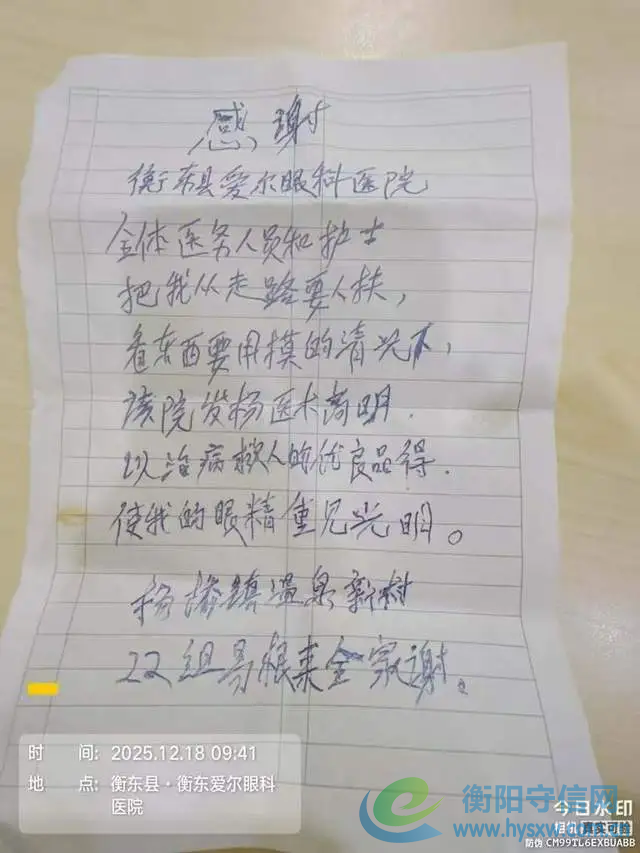 感谢
衡东县爱尔眼科医院
全体医务人员和护士
把我从走路要人扶，
看东西要用摸的清况下，
该院发扬医术高明.
以治病救人的优良品得.
使我的眼精重见光明。
杨 镇温泉新村
22组 根来全家谢。
时 间: 2025.12.18 09:41
地 点: 衡东县·衡东爱尔眼科
医院
衡阳守信网
www.hysxw.com
今日水印
相机 真实可验
防伪 CM99TL6EXBUABB